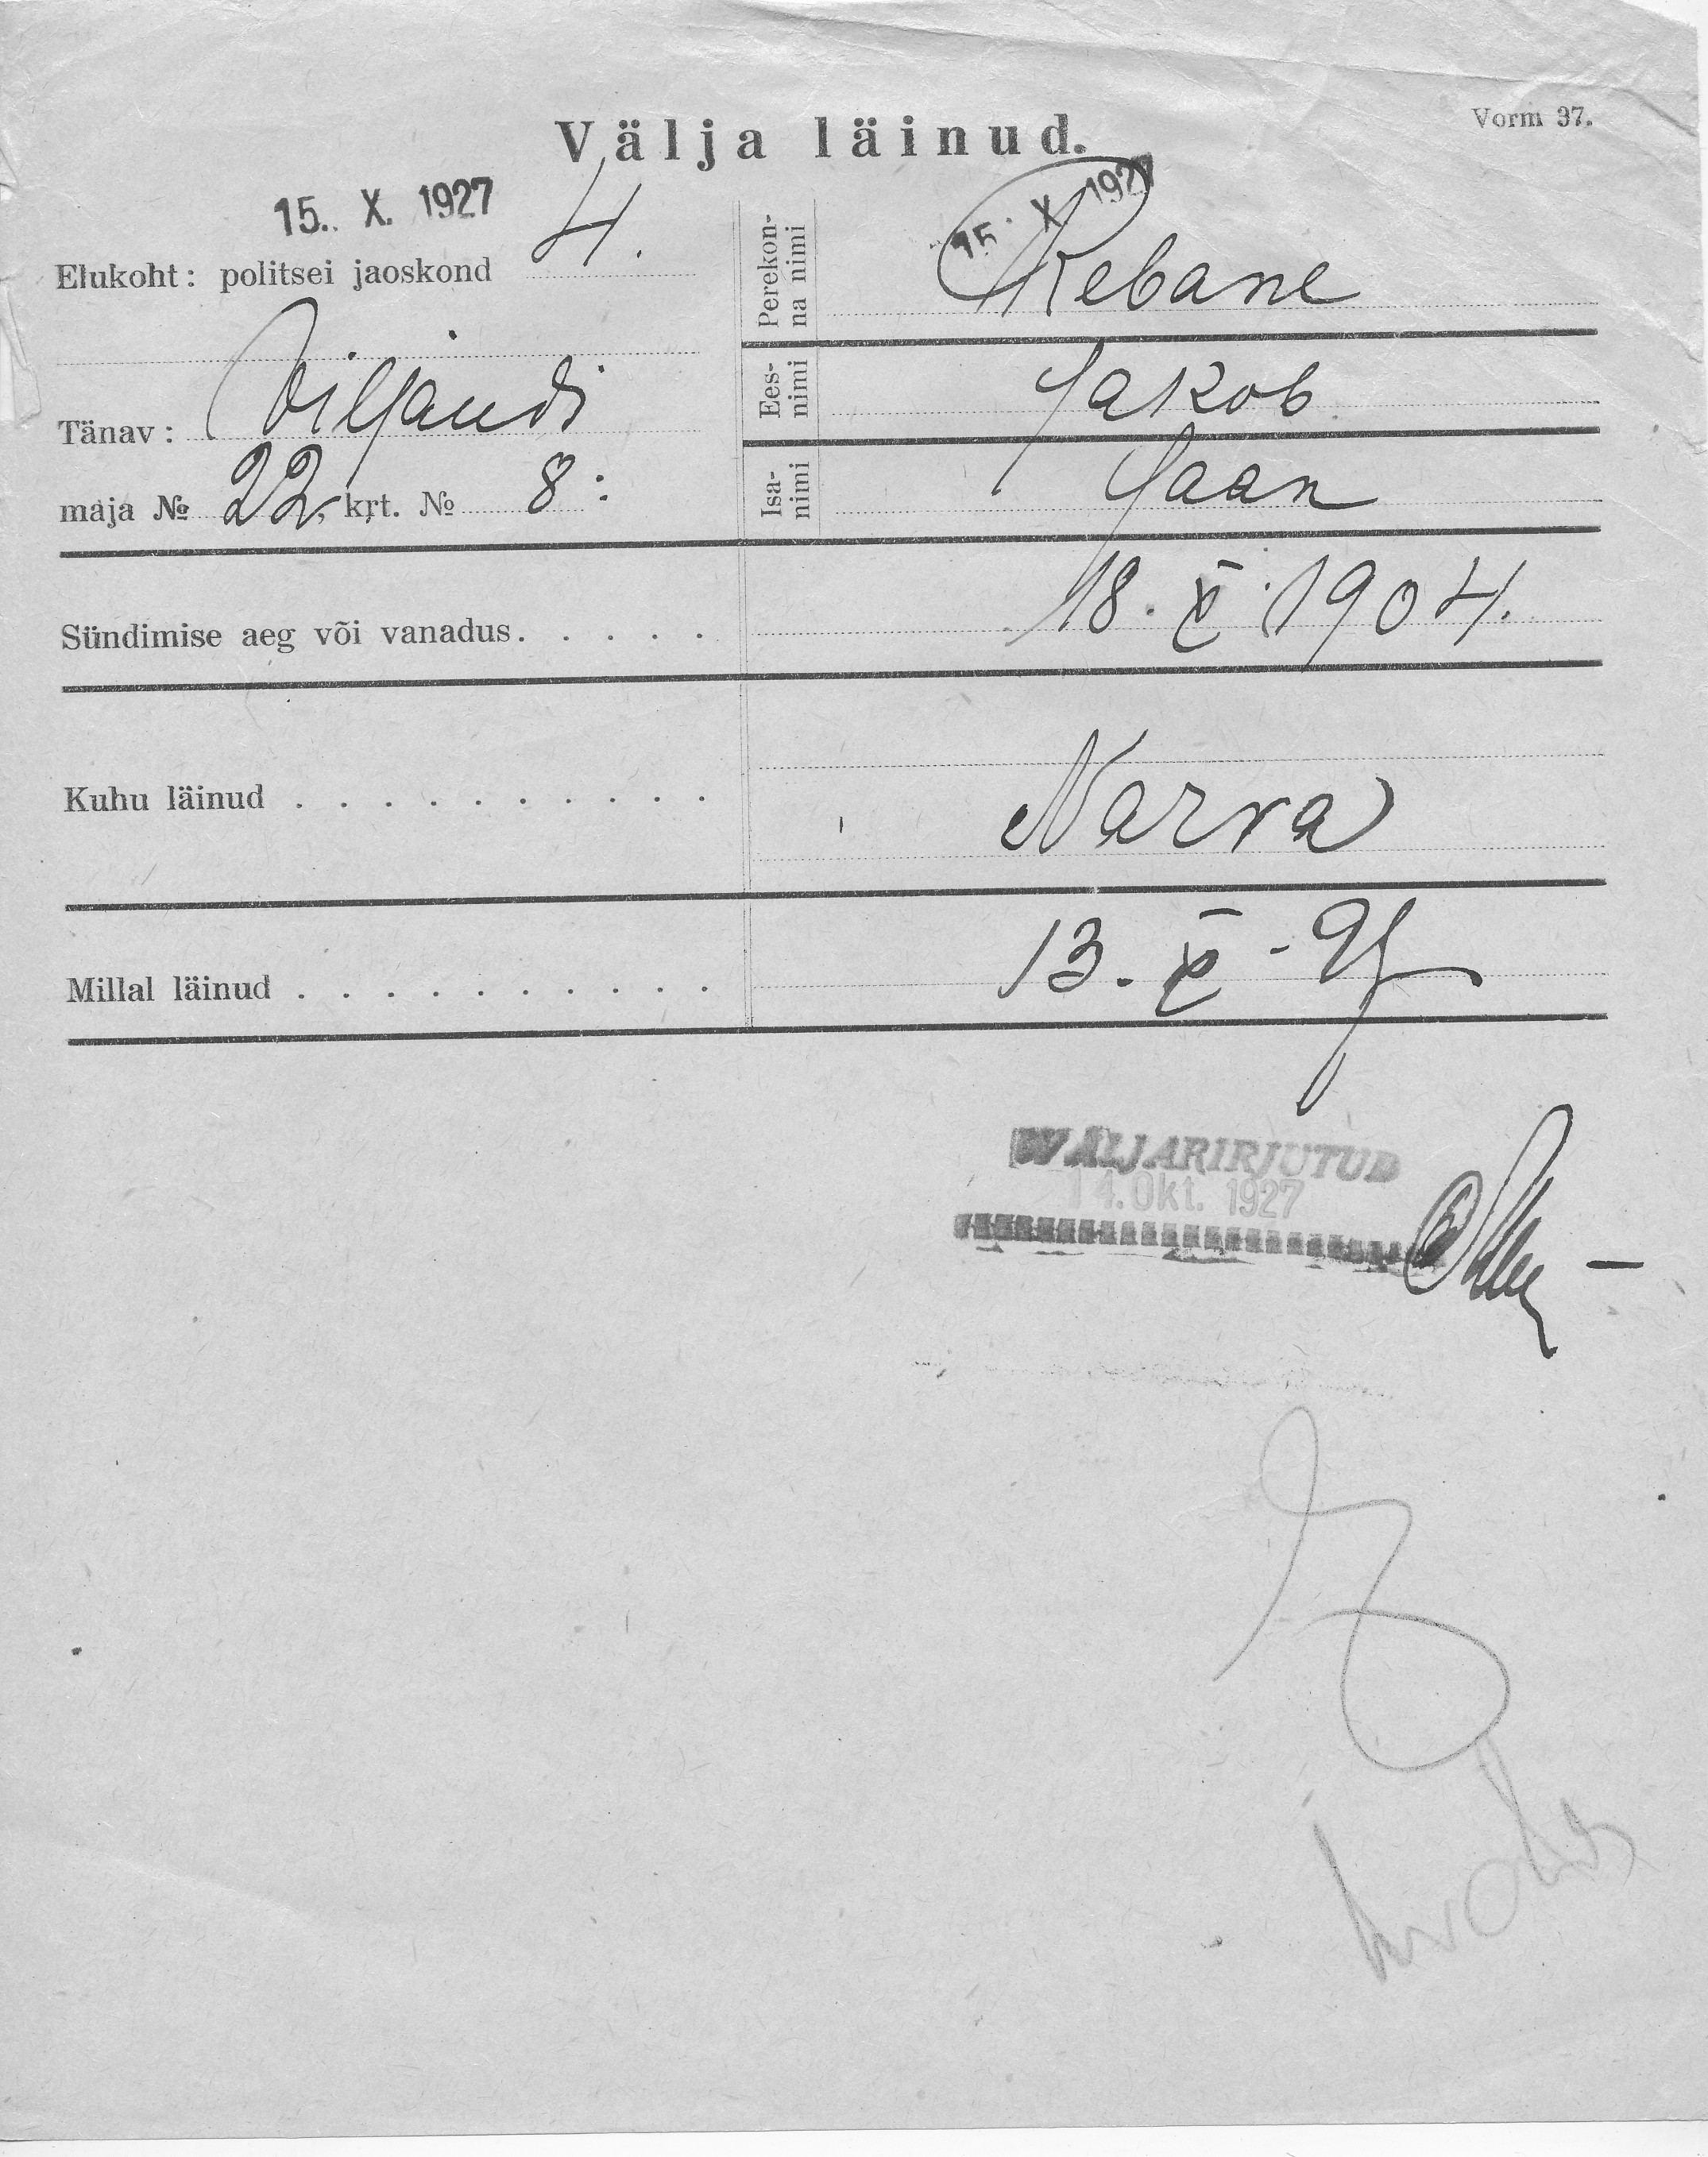 Vorm 37.
Välja läinud.
15. X. 1927
15. X 1927
Elukoht: politsei jaoskond 4.
Tänav: Viljandi
maja № 22, krt. № 8:
Perekon-
na nimi
Rebane
Ees-
nimi
Jakob
Isa-
nimi
Jaan
Sündimise aeg või vanadus. . . . . . 18. X. 1904.
Kuhu läinud . . . . . . . . . . Narva
Millal läinud . . . . . . . . . . 13. X -
WÄLJARIRJUTUD
14. Okt. 1927